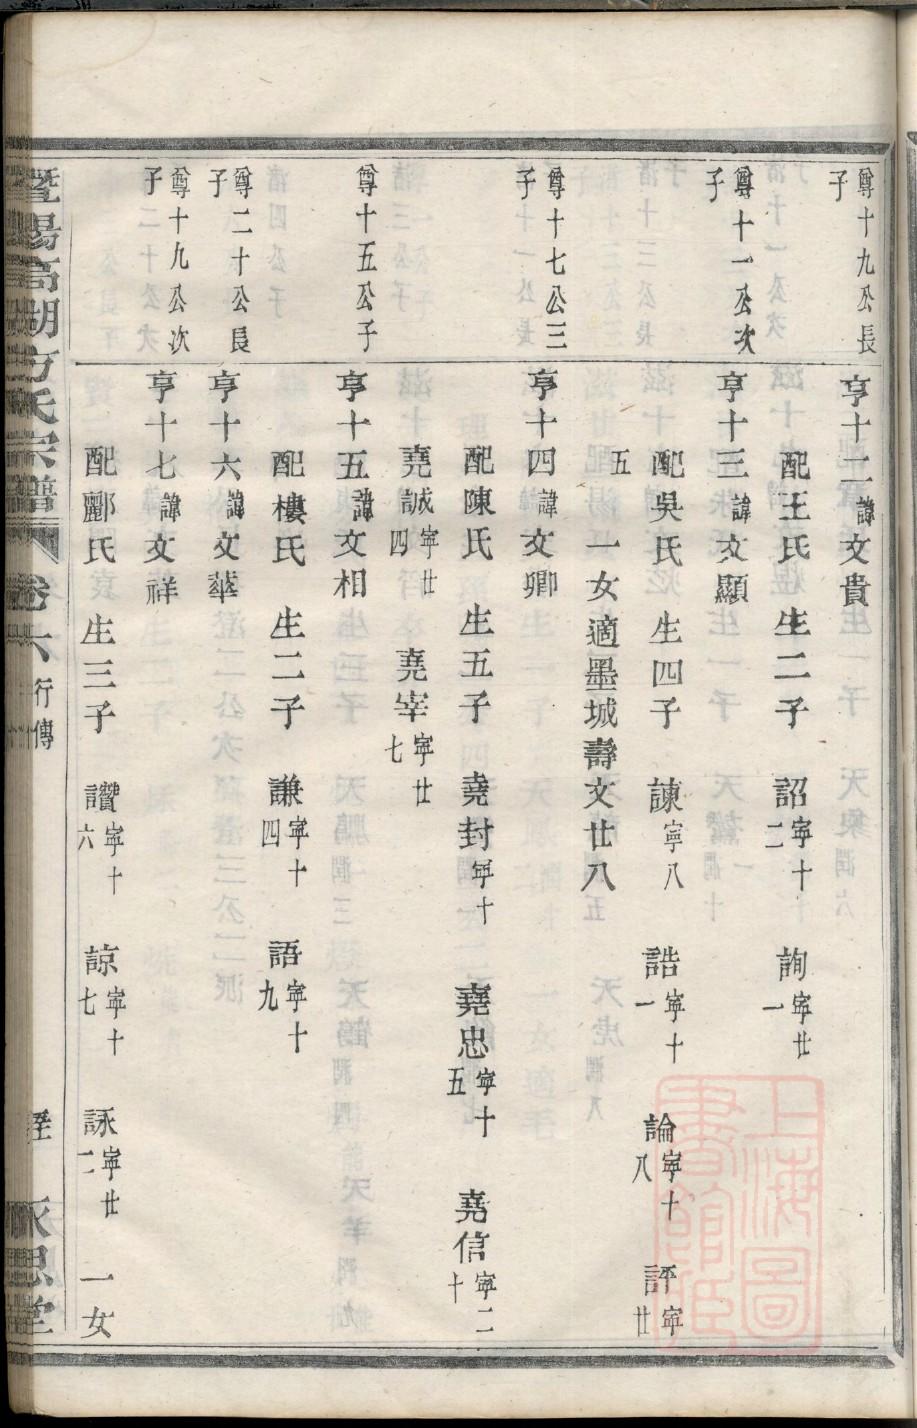 尊十九公長子
亨十二諱文貴
配王氏 生二子 詔寧十二 詢寧廿一
尊十一公次子
亨十三諱文顯
配吳氏 生四子 諫寧八 誥寧十一 論寧十八 評寧廿五
一女適墨城壽文廿八
尊十七公三子
亨十四諱文卿
配陳氏 生五子 堯封寧十 堯忠寧十五 堯信寧二十
堯誠寧廿四 堯宰寧廿七
尊十五公子
亨十五諱文相
配樓氏 生二子 謙寧十四 語寧十九
尊二十公長子
亨十六諱文華
尊十九公次子
亨十七諱文祥
配酈氏 生三子 讚寧十六 諒寧十七 詠寧廿二 一女
暨陽高湖方氏宗譜 卷六 行傳 永思堂
上海圖書館藏